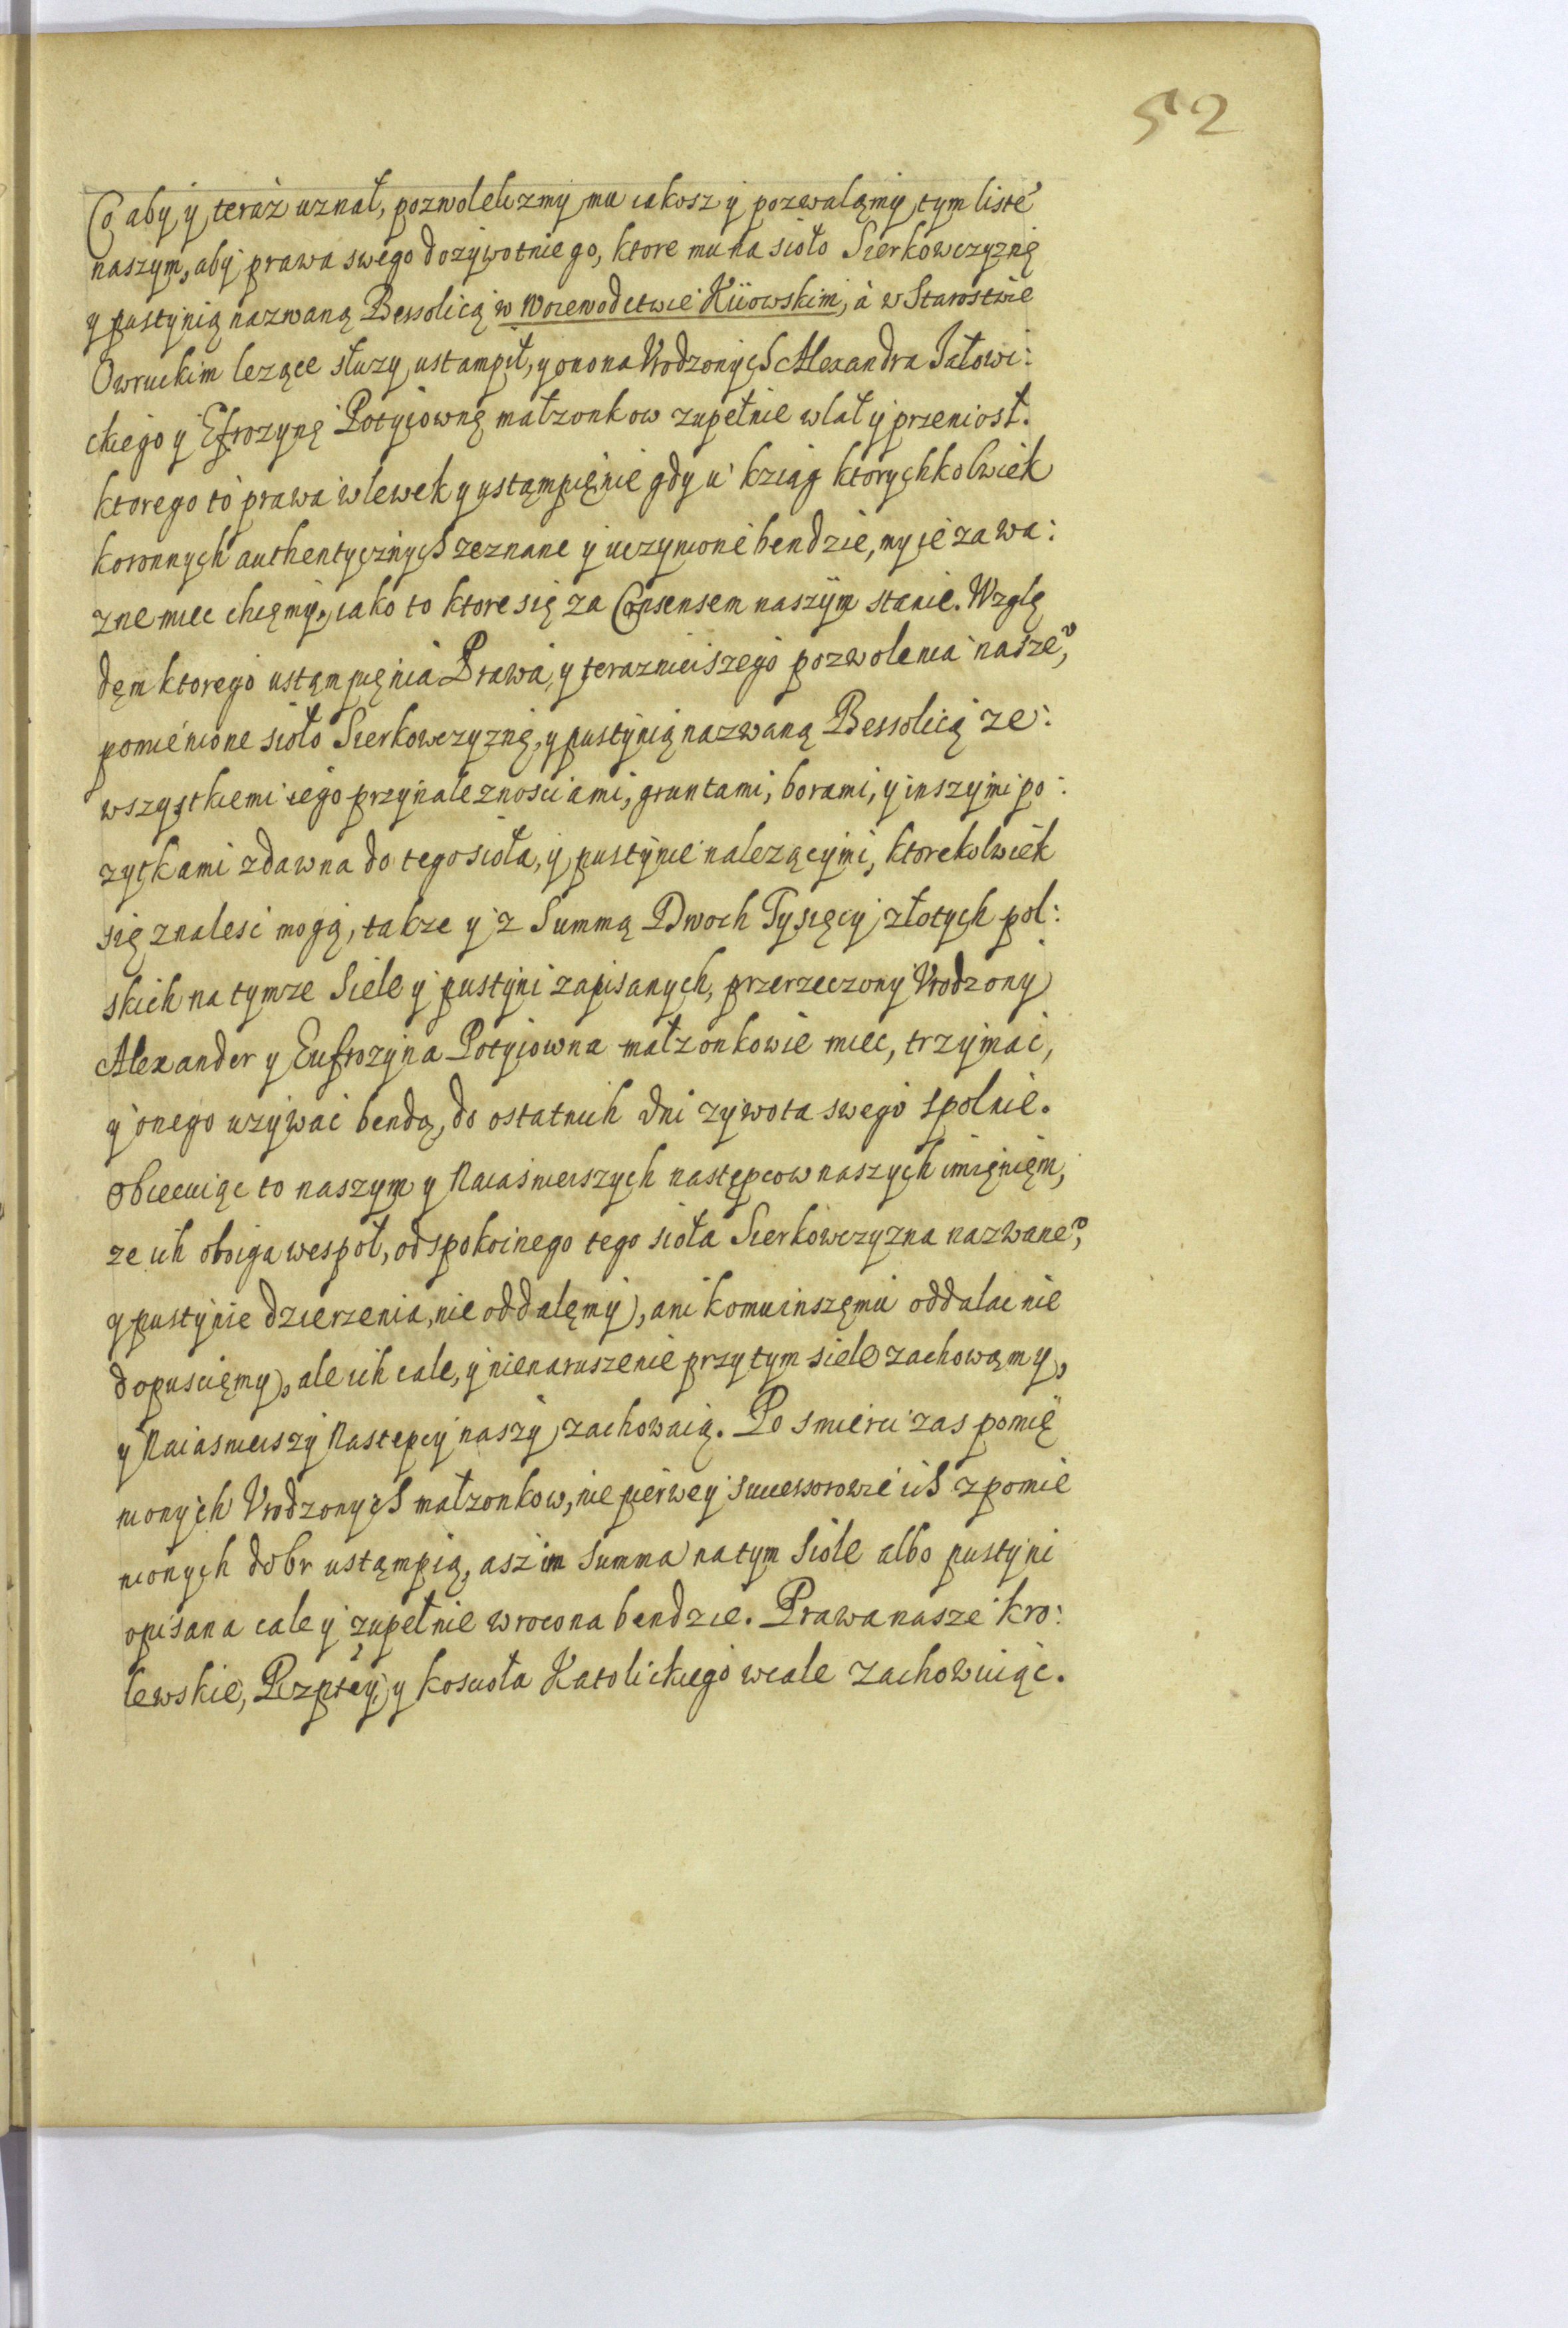 52
Co aby y teraz uznał, pozwoleliżmy mu iakosz y pozwalamy tym liste͂
naszym, aby prawa swego dozywotniego, ktore mu na sioło Sierkowczyznę
y pustynią nazwaną Bessolicą w Woiewodctwie Kiiowskim, à w Starostwie
Owruckim lezące słuzy ustampił, y ono na Vrodzonych Alexandra Jałowi:
ckiego y Efrozynę Potyiownę małzonkow zupełnie wlał y przeniosł.
ktorego to prawa wlewek y ustąmpięnie gdy u kziąg ktorychkolwiek
koronnych authentycznych zeznane y uczynione bendzie, my ie za wa:
zne miec chcęmy, iako to ktore się za Consensem naszym stanie. Wzglę
dęm ktorego ustąmpięnia Prawa, y teraznieiszego pozwolenia nasze͂,
pomienione sioło Sierkowczyznę, y pustynią nazwaną Bessolicą ze:
wszystkiemi iego przynaleznosciami, gruntami, borami, y inszymi po:
zytkami zdawna do tego sioła, y pustynie nalezącymi, ktorekolwiek
się znalesc mogą, takze y z Summą Dwoch Tysięcy złotych pol:
skich na tymze Siele y pustyni zapisanych, przerzeczony Vrodzony
Alexander y Eufrozyna Potyiowna małzonkowie miec, trzymac,
y onego uzywac bendą, do ostatnich dni zywota swego spolnie.
Obiecuiąc to naszym y Naiasnieiszych następcow naszych imięnięm,
ze ich oboiga wespoł, od spokoinego tego sioła Sierkowczyzna nazwane͂,
y pustynie dzierzenia, nie oddalęmy, ani komu inszęmu oddalac nie
dopuscięmy, ale ich cale, y nienaruszenie przy tym siele zachowamy,
y Naiasnieiszy Nastepcy naszy zachowaią. Po smierci zas pomię
nionych Vrodzonych małzonkow, nie pierwey Successorowie ich z pomie
nionych dobr ustąmpią, asz im Summa na tym Siole albo pustyni
opisana cale y zupełnie wrocona bendzie. Prawa nasze kro:
lewskie, Rzptey, y koscioła Katolickiego wcale zachowuiąc.